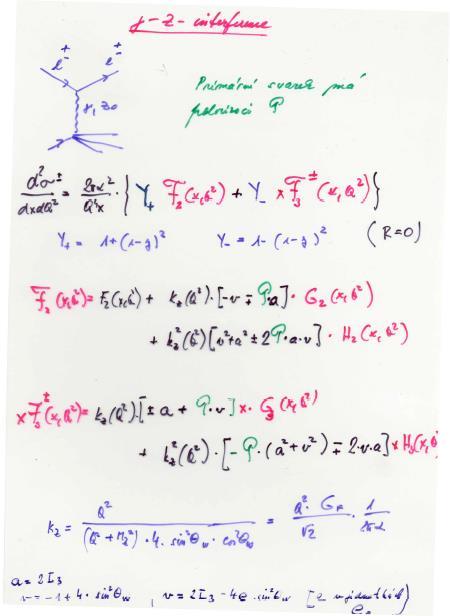 γ-Z-interference
e^{±} e^{±}
γ, Z0
Primární svazek má
polarizaci P
d²σ^{±}/dxdQ² = 2πα²/Q⁴x · { Y₊ F₂(x,Q²) + Y₋ xF₃^{±}(x,Q²) }
Y₊ = 1+(1-y)² Y₋ = 1-(1-y)² (R=0)
F₂(x,Q²) = F₂(x,Q²) + k_z(Q²)·[-v ∓ P·a]· G₂(x,Q²)
+ k_z²(Q²)[v²+a² ± 2P·a·v]· H₂(x,Q²)
xF₃^{±}(x,Q²) = k_z(Q²)·[± a + P·v] x·G₃(x,Q²)
+ k_z²(Q²)·[-P·(a²+v²) ∓ 2·v·a] x H₃(x,Q²)
k_z = Q²/((Q²+M_z²)·4·sin²θ_w·cos²θ_w) = Q²·G_F/√2 · 1/2πα
a = 2I₃
v = -1+4·sin²θ_w , v = 2I₃ - 4e·sin²θ_w